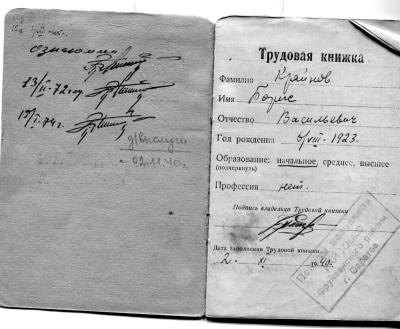 ознакомлен
13/II-72 год
15/I-74г.
д/выслуги
02.11.40г.
Трудовая книжка
Фамилия Крайнов
Имя Борис
Отчество Васильевич
Год рождения 6/VIII-1923.
Образование: начальное, среднее, высшее
(подчеркнуть)
Профессия нет.
Подпись владельца Трудовой книжки
Дата заполнения Трудовой книжки
2. XI 1940г.
Фрунзенского района
г. Саратов